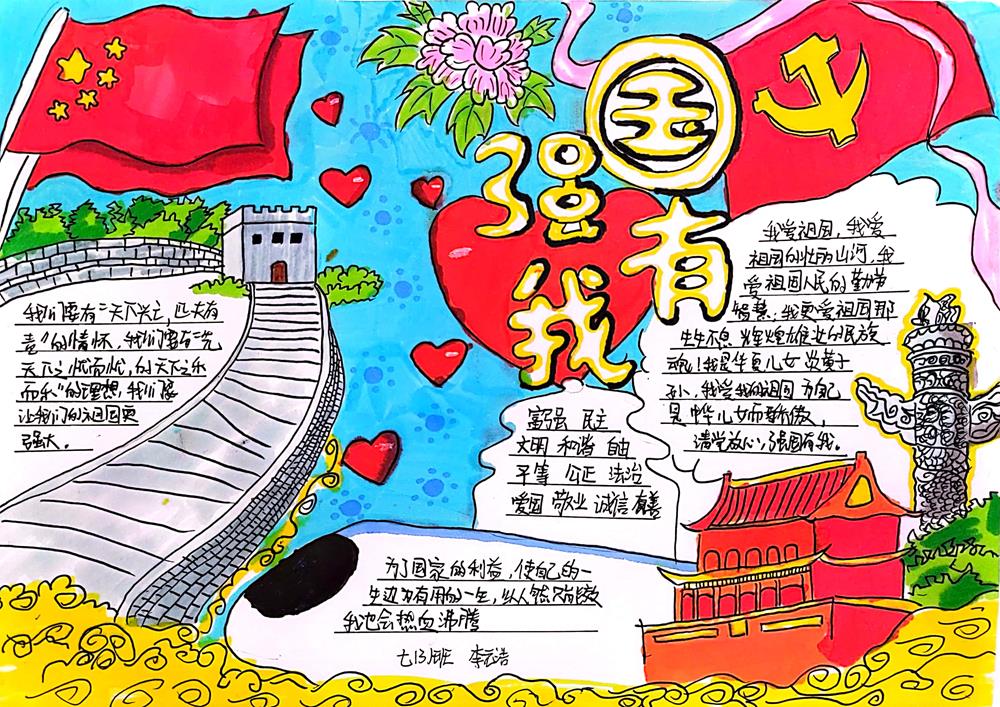 强国
有我
我们要有"天下兴亡,匹夫有
责"的情怀,我们要有"先
天下之忧而忧,后天下之乐
而乐"的理想,我们要
让我们的祖国更
强大。
我爱祖国,我爱
祖国的壮丽山河,我
爱祖国人民的勤劳
智慧,我更爱祖国那
生生不息 辉煌雄壮的民族
魂!我是华夏儿女 炎黄子
孙,我爱我的祖国 为自己
是中华儿女而骄傲,
请党放心,强国有我。
富强 民主
文明 和谐 自由
平等 公正 法治
爱国 敬业 诚信 友善
为了国家的利益,使自己的一
生边为有用的一生,
我也会热血沸腾
七(3)班